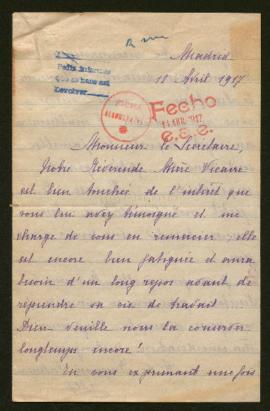 Madrid
18 Avril 1917
Fecho
14 ABR. 1917
Monsieur le Secrétaire,
Notre Révérende Mère Vicaire
est bien touchée de l'intérêt que
vous lui avez témoigné et me
charge de vous en remercier; elle
est encore bien fatiguée et aura
besoin d'un long repos avant de
reprendre sa vie de travail
Dieu veuille nous la conserver
longtemps encore!
En vous exprimant une fois